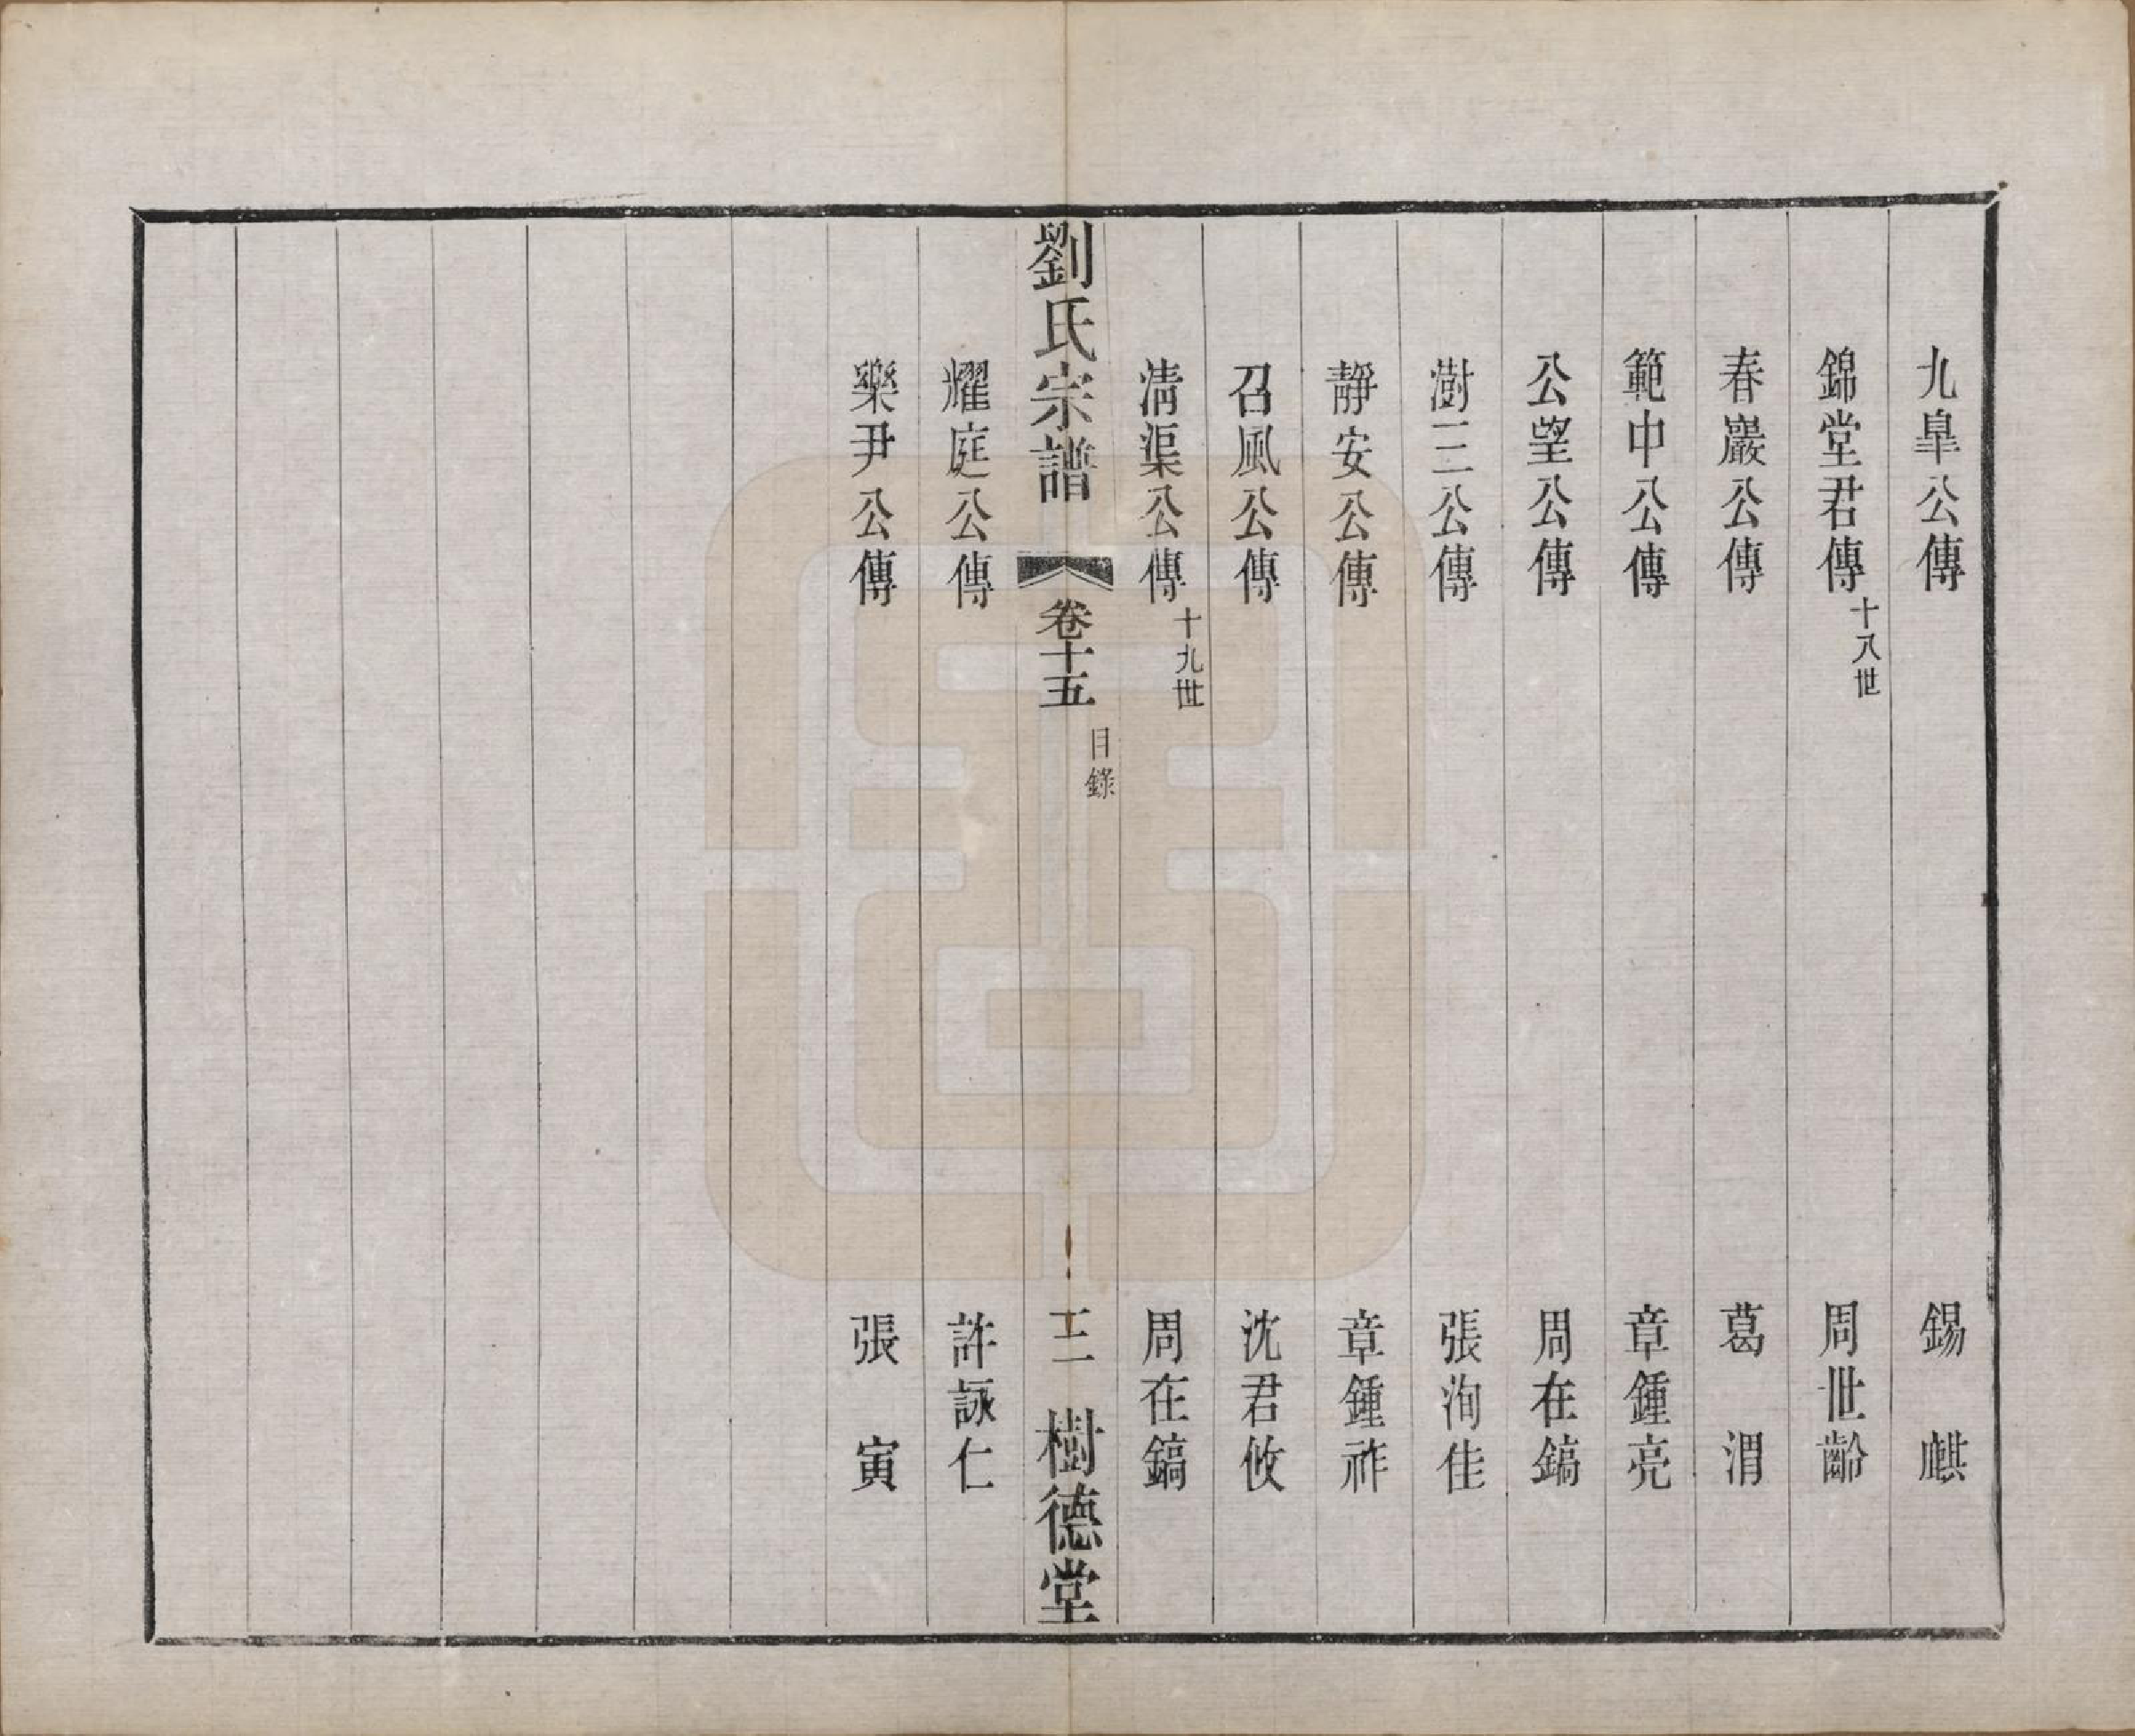 九臯公傳 錫麒
錦堂君傳 十八世 周世齡
春巖公傳 葛渭
範中公傳 章鍾亮
公望公傳 周在鎬
澍三公傳 張洵佳
靜安公傳 章鍾祚
召風公傳 沈君攸
淸渠公傳 十九世 周在鎬
劉氏宗譜 卷十五 目錄 三 樹德堂
耀庭公傳 許詠仁
樂尹公傳 張寅